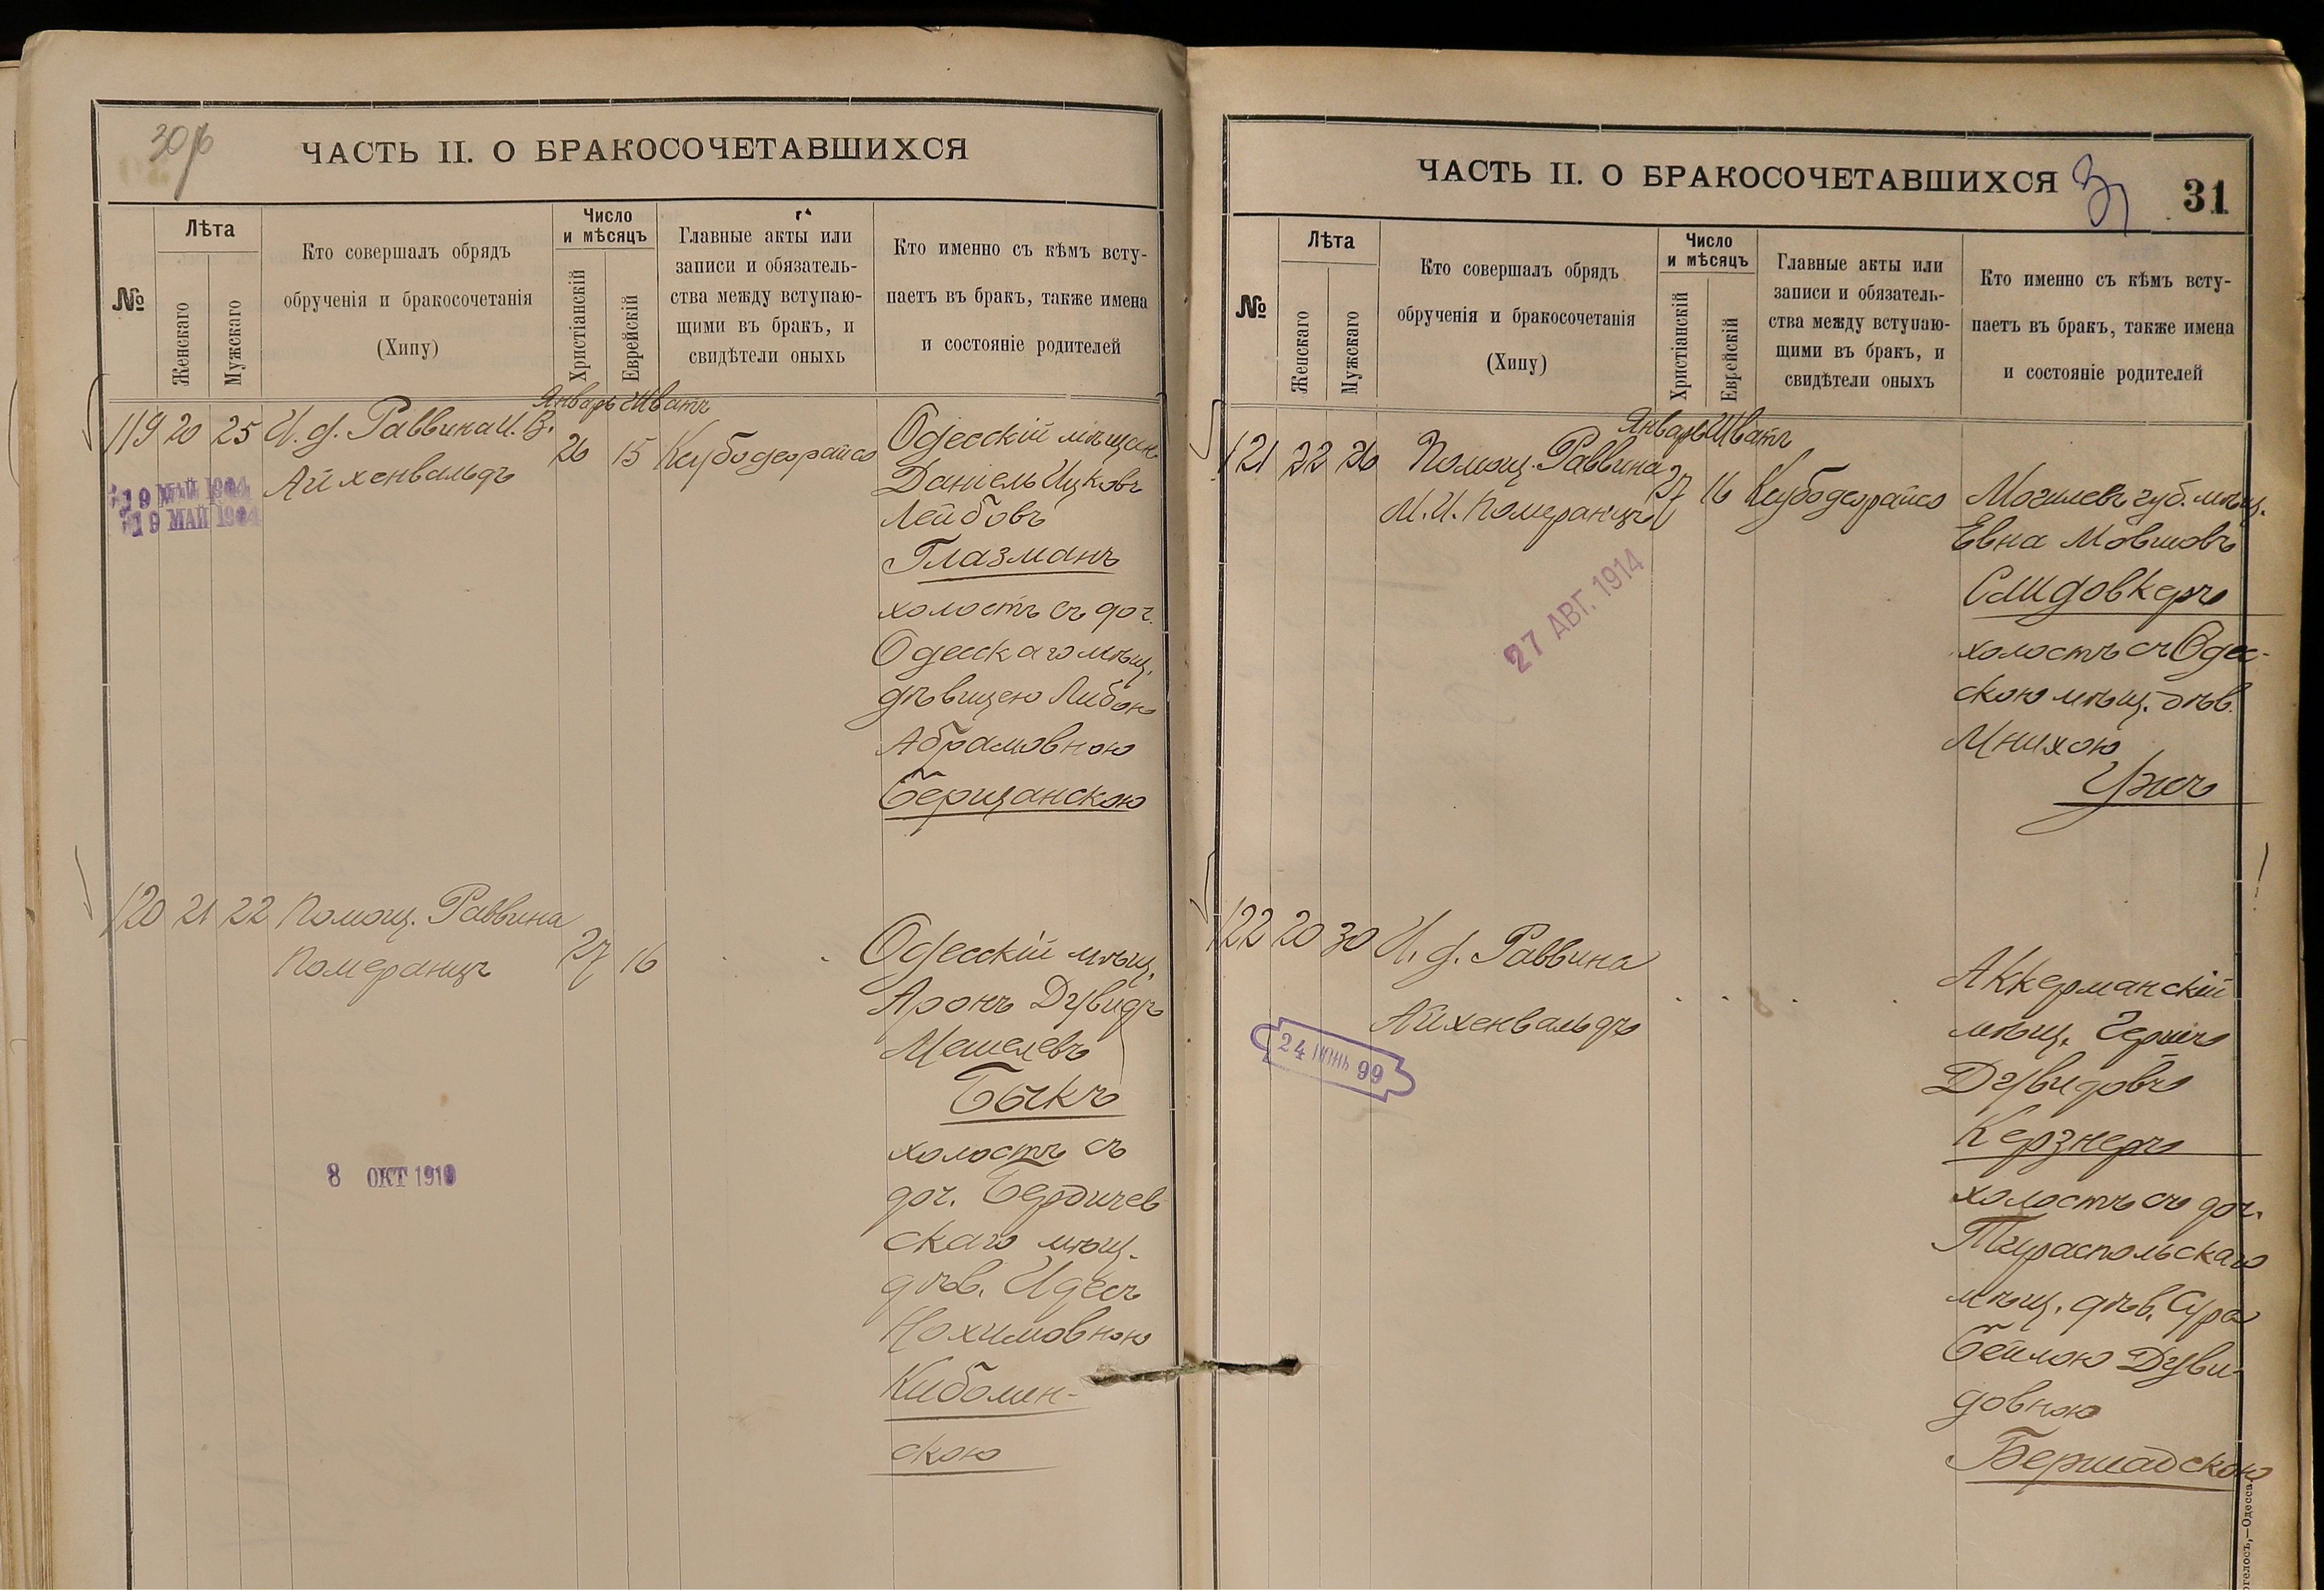 30 об
ЧАСТЬ II. О БРАКОСОЧЕТАВШИХСЯ
№
Лѣта
Женскаго
Мужскаго
Кто совершалъ обрядъ
обрученія и бракосочетанія
(Хипу)
Число
и мѣсяцъ
Христіанскій
Еврейскій
Главные акты или
записи и обязатель-
ства между вступаю-
щими въ бракъ, и
свидѣтели оныхъ
Кто именно съ кѣмъ всту-
паетъ въ бракъ, также имена
и состояніе родителей
Январь Шватъ
119 20 25 И. д. Раввина И. В.
Айхенвальдъ
26 15 Кисубодеорайсо
19 МАЙ 1904
19 МАЙ 1904
Одесскій мѣщан.
Даніель Ицковъ
Лейбовъ
Глазманъ
холостъ съ доч.
Одесскаго мѣщ.
дѣвицею Либою
Абрамовною
Берщанскою
120 21 22 Помощ. Раввина
Померанцъ
27 16
8 ОКТ 1910
Одесскій мѣщ.
Аронъ Дувидъ
Мешелевъ
Быкъ
холостъ съ
доч. Бердичев
скаго мѣщ.
дѣв. Идесъ
Нохимовною
Киблин-
скою
ЧАСТЬ II. О БРАКОСОЧЕТАВШИХСЯ
31
31
№
Лѣта
Женскаго
Мужскаго
Кто совершалъ обрядъ
обрученія и бракосочетанія
(Хипу)
Число
и мѣсяцъ
Христіанскій
Еврейскій
Главные акты или
записи и обязатель-
ства между вступаю-
щими въ бракъ, и
свидѣтели оныхъ
Кто именно съ кѣмъ всту-
паетъ въ бракъ, также имена
и состояніе родителей
Январь Шватъ
121 22 26 Помощ. Раввина
М. И. Померанцъ
27 16 Кисубодеорайсо
27 АВГ. 1914
Могилевъ губ. мѣщ.
Евна Мовшовъ
Слидовкеръ
холостъ съ Одес-
скою мѣщ. дѣв.
Мнихою
Ужъ
122 20 30 И. д. Раввина
Айхенвальдъ
24 ІЮНЬ 99
Аккерманскій
мѣщ. Гершъ
Дувидовъ
Керзнеръ
холостъ съ доч.
Тираспольскаго
мѣщ. дѣв. Сура
Бейлою Дуви-
довною
Бершадскою